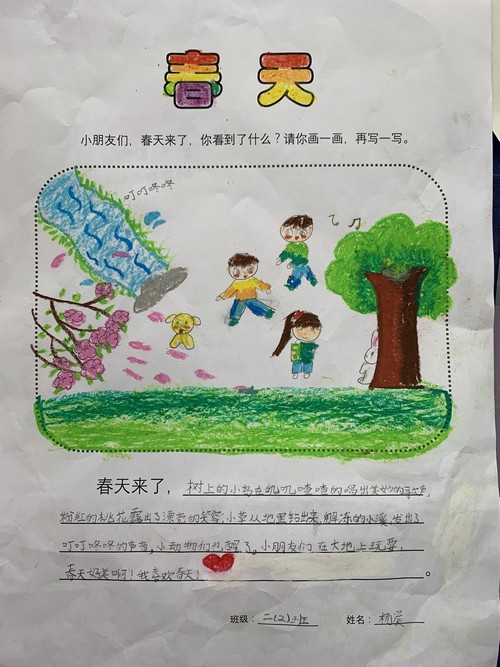 春天
小朋友们，春天来了，你看到了什么？请你画一画，再写一写。
叮叮咚咚
春天来了，树上的小鸟在叽叽喳喳的唱出美妙的歌声，
粉红的桃花露出了漂亮的笑容，小草从地里钻出来，解冻的小溪发出了
叮叮咚咚的声音。小动物们也醒了。小朋友们在大地上玩耍，
春天好美啊！我喜欢春天！。
班级：二(2)班 姓名：杨